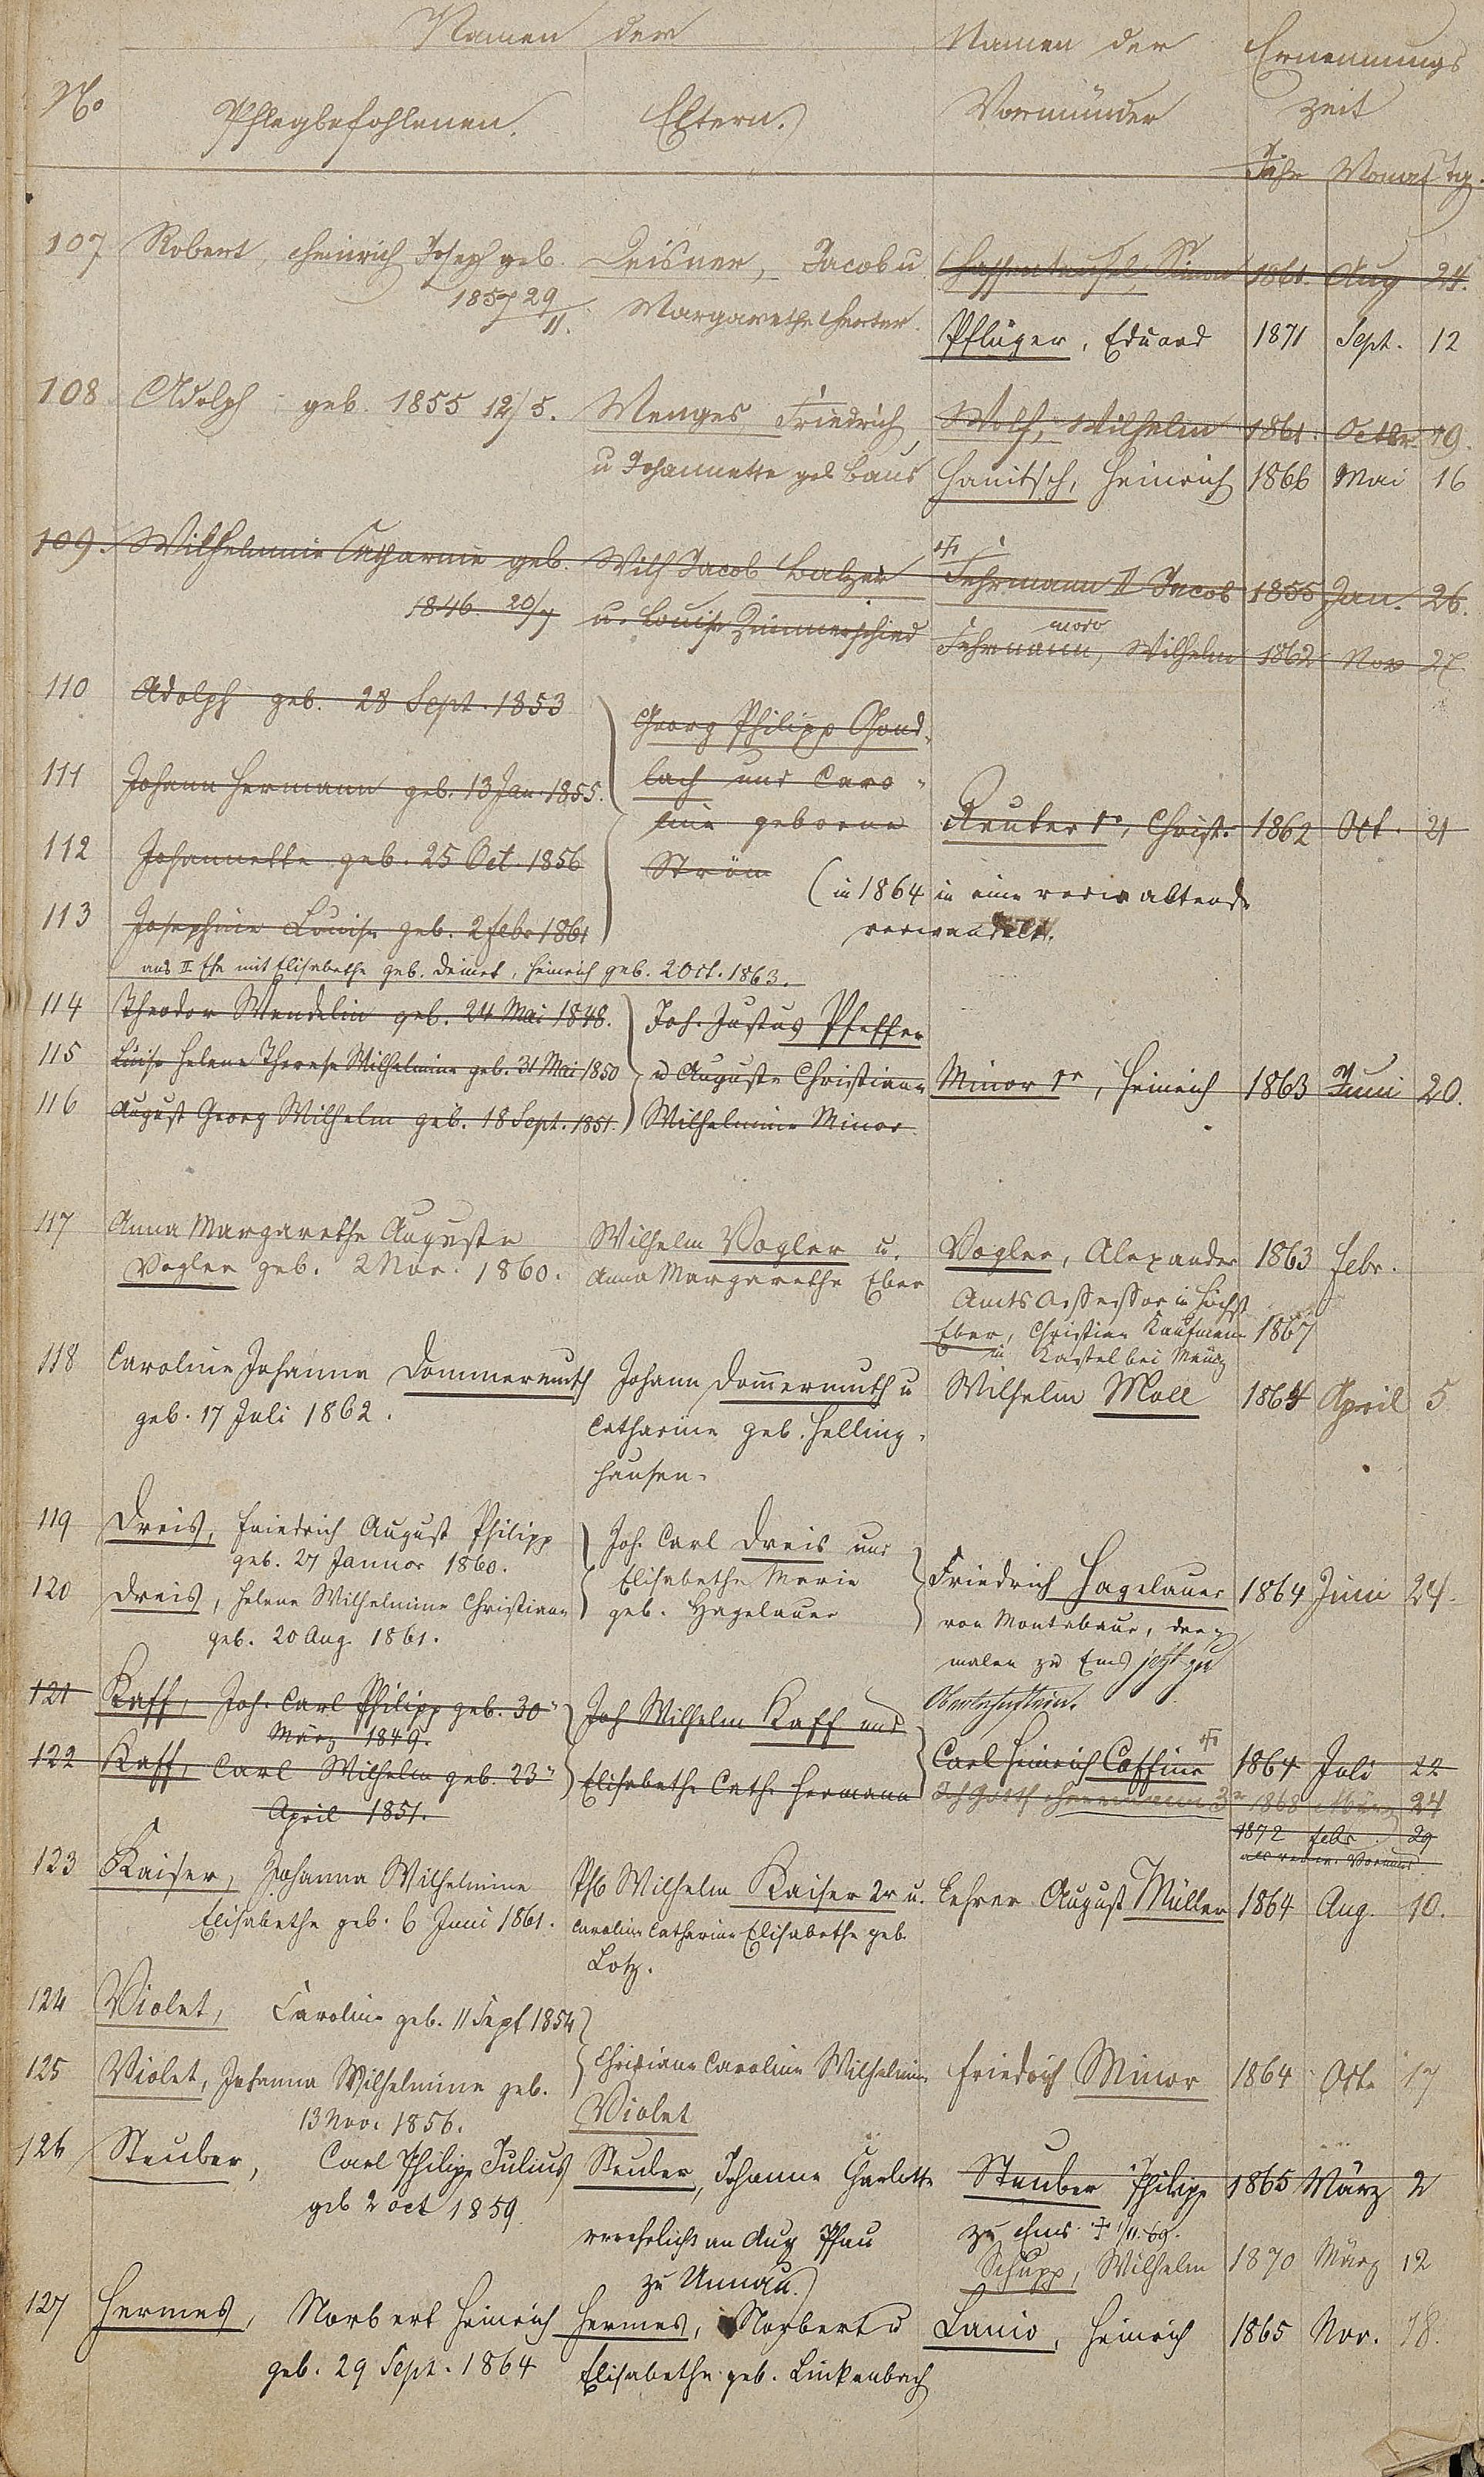 Namen der Namen der Ernennungs
No Pflegbefohlenen. Eltern. Vormünder zeit
Jahr Monat Tg.
107 Robert, Heinrich Joseph geb. Deisner, Jacob u Simon 1861. Aug 24.
1857 29/11. Margarethe Herter. Pflüger, Eduard 1871 Sept. 12
108 Adolph geb. 1855 12/5. Menges Friedrich, Wolf, Wilhelm 1861. Octbr. 19.
u Johannette geb Baus Hanitsch, Heinrich 1866 Mai 16
109. Wilhelmine Catharine geb. Wilh Jacob Balzer Fehrmann II Jacob 1855 Jan. 26.
1846. 20/7 u. Louise Zimmerschied modo
Fehrmann, Wilhelm 1862 Nov 27
110 Adolph geb. 28 Sept. 1853 Georg Philipp Gond-
111 Johann Hermann geb. 13 Jan. 1855. lach und Caro-
line geborne Reuter 1r, Christ. 1862 Oct. 21
112 Johannette geb. 25 Oct. 1856 Ström (in 1864 in eine verwaltende
113 Josephine Louise geb. 2 Febr 1861 verwandelt.
aus II Ehe mit Elisabethe geb. Deinet, Heinrich geb. 2 Oct. 1863.
114 Theodor Wendelin geb. 24 Mai 1848. Joh. Justus Pfeffer
115 Luise Helene Therese Wilhelmine geb. 31 Mai 1850 u Auguste Christiane Minor 1r, Heinrich 1863 Juni 20.
116 August Georg Wilhelm geb. 18 Sept. 1851. Wilhelmine Minor
117 Anna Margarethe Auguste Wilhelm Vogler u. Vogler, Alexander 1863 Febr.
Vogler geb. 2 Nov. 1860. Anna Margarethe Eber Amts Assessor in Höchst
Eber, Christian Kaufmann 1867
in Kastel bei Mainz
118 Caroline Johanna Dommermuth Johann Dommermuth u Wilhelm Moll 1864 April 5
geb. 17 Juli 1862. Catharine geb. Helling-
hausen.
119 Dreis, Friedrich August Philipp Joh. Carl Dreis und
geb. 27 Januar 1860. Elisabethe Marie Friedrich Hagelauer 1864 Juni 24.
120 Dreis, Helene Wilhelmine Christiane geb. Hagelauer von Montabaur, der-
geb. 20 Aug. 1861. malen zu Ems jetzt zu
Oberlahnstein.
121 Kaff, Joh. Carl Philipp geb. 30n Joh Wilhelm Kaff und
März 1849.
122 Kaff, Carl Wilhelm geb. 23n Elisabethe Cath. Hermann Carl Heinrich Caffine 1864 Juli 22
April 1851. Hermann 3r 1868 März 24
1872 Febr. 29
als Vormund
123 Kaiser, Johanna Wilhelmine Ph Wilhelm Kaiser 2r u. Lehrer August Müller 1864 Aug. 10.
Elisabethe geb. 6 Juni 1861. Caroline Catharine Elisabethe geb.
Lotz.
124 Violet, Caroline geb. 11 Sept 1854
125 Violet, Johanna Wilhelmine geb. Christiane Caroline Wilhelmine Friedrich Minor 1864 Octb 17
13 Nov. 1856. Violet
126 Steuber, Carl Philipp Julius Steuber, Johanne Charlotte Steuber Philipp 1865 März 2
geb 2 Oct 1859. verehelicht an Aug Pfau zu Ems † 1/11. 69.
zu Unnau. Schupp, Wilhelm 1870 März 12
127 Hermes, Norbert Heinrich Hermes, Norbert u Lanio, Heinrich 1865 Nov. 18.
geb. 29 Sept. 1864 Elisabethe geb. Linkenbach